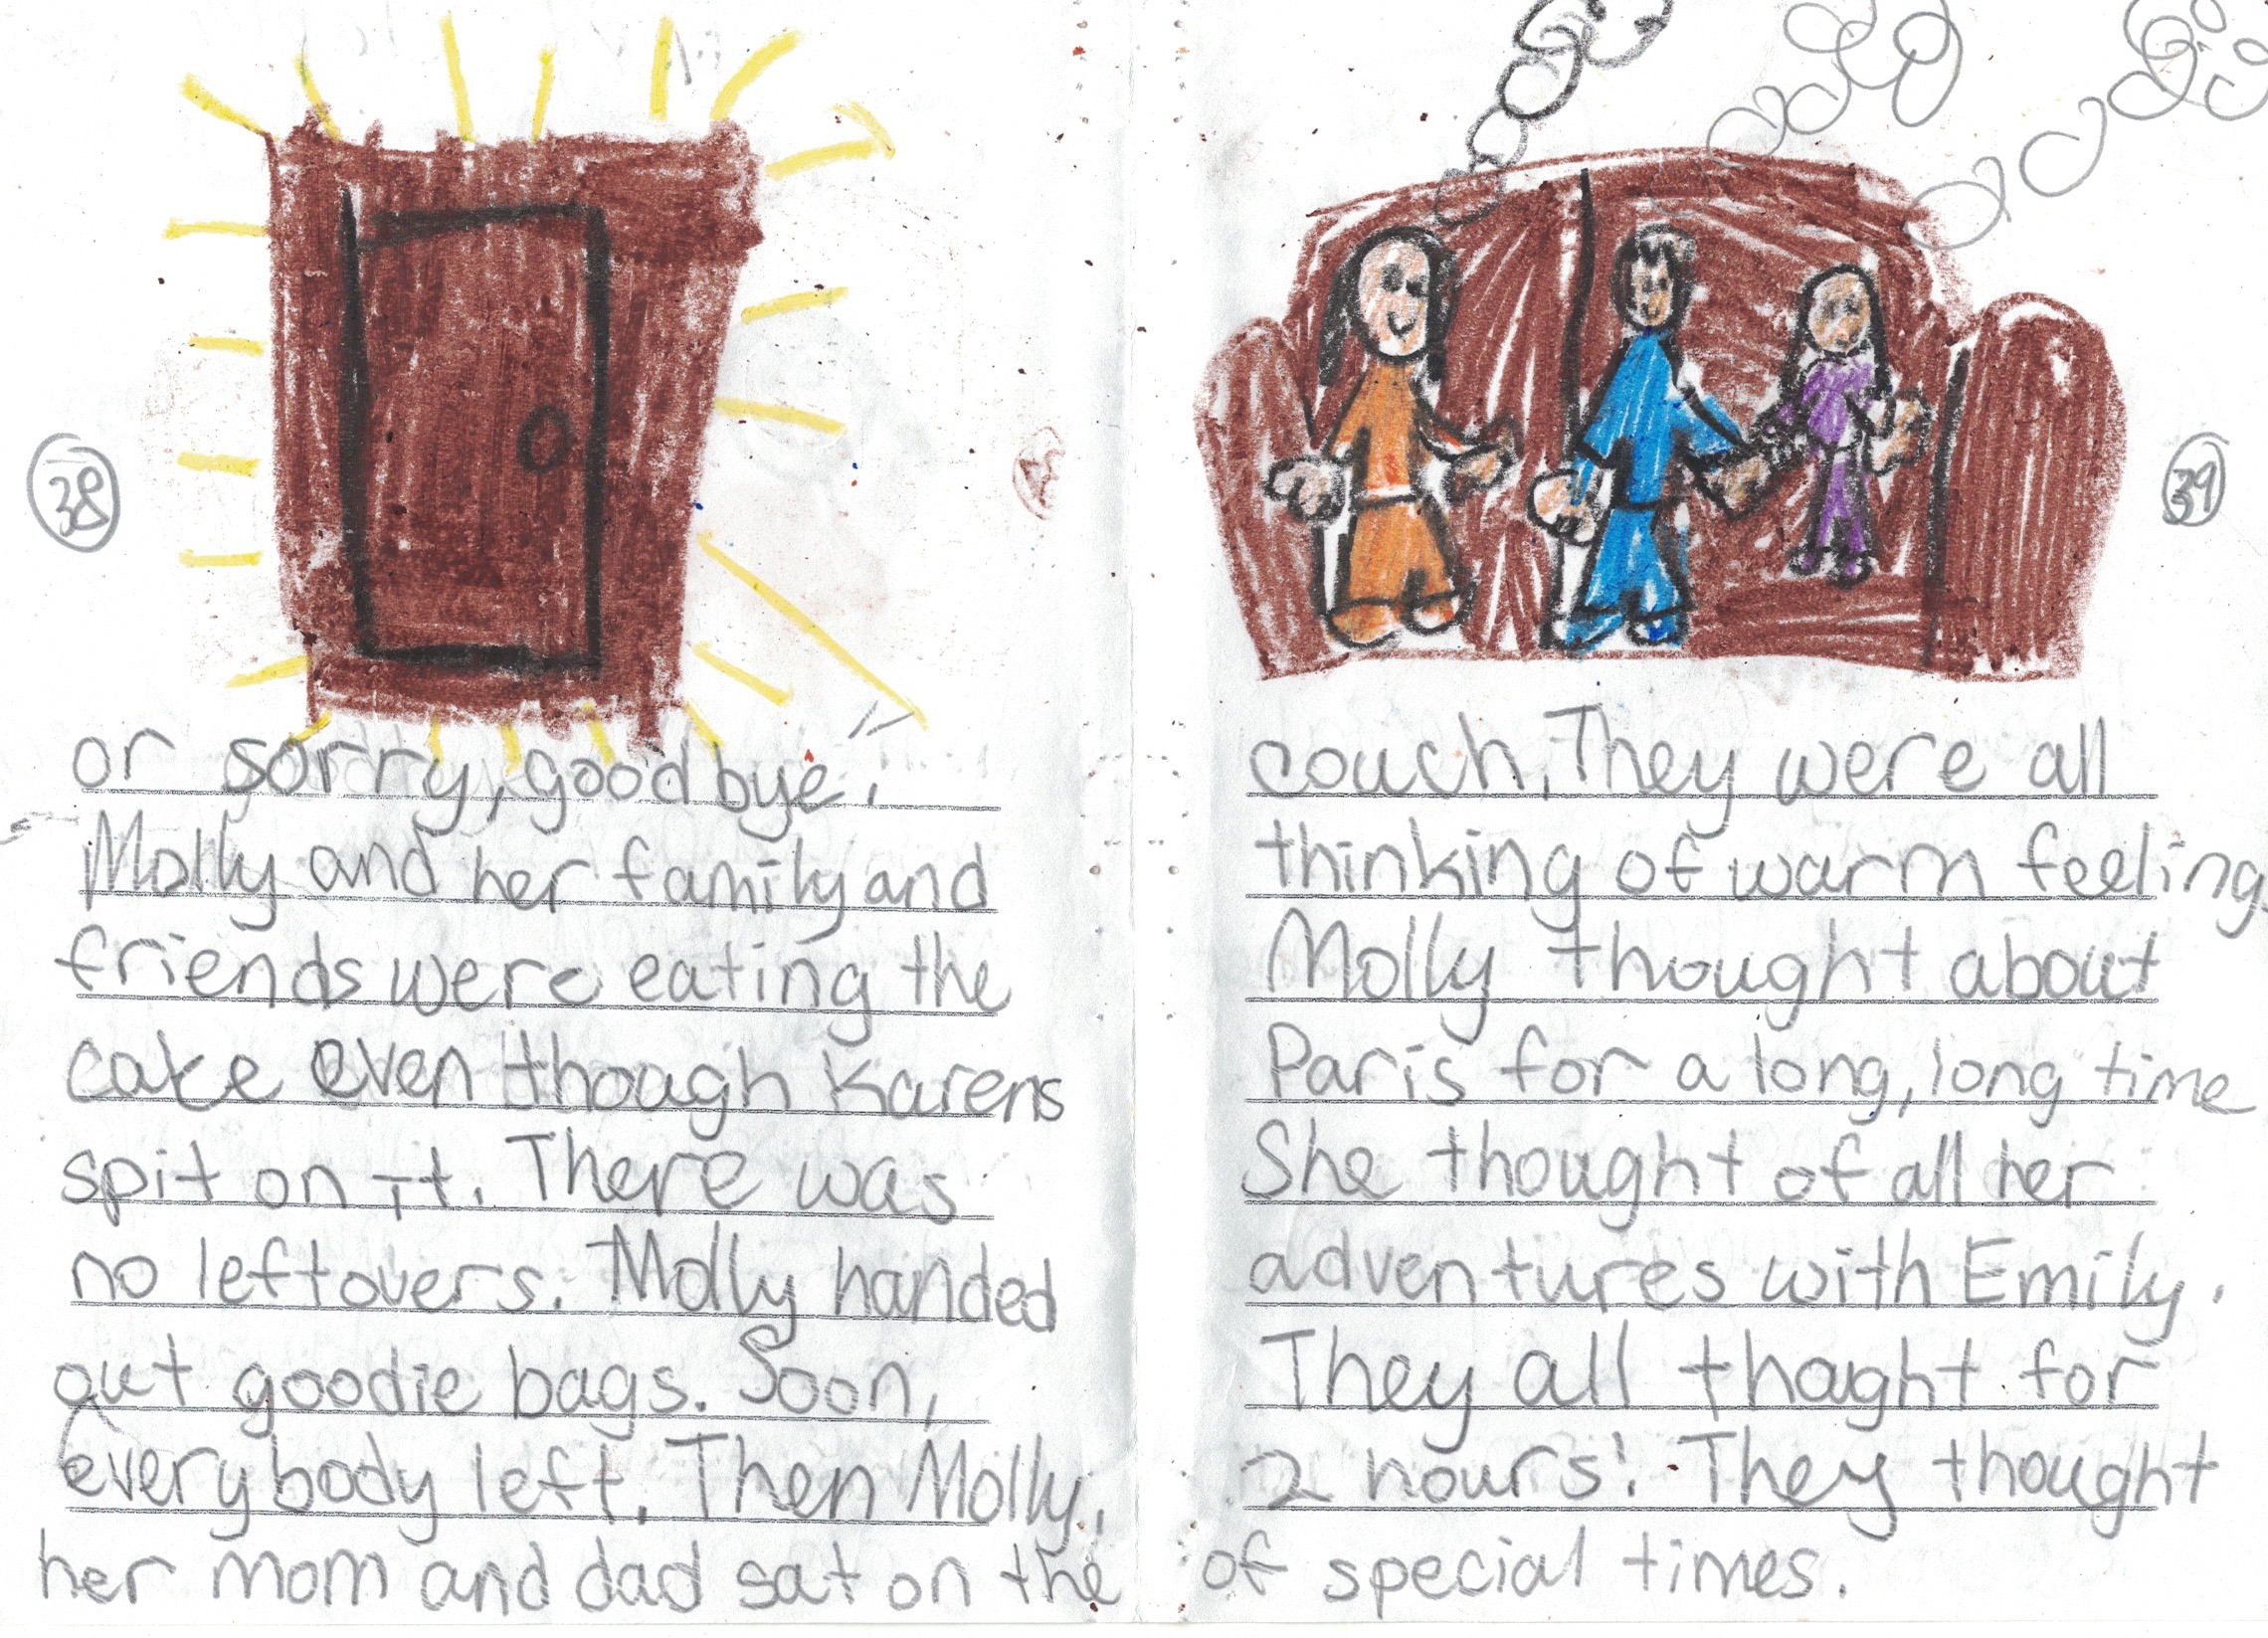 38
or sorry, goodbye.
Molly and her family and
friends were eating the
cake even though Karens
spit on it. There was
no leftovers. Molly handed
out goodie bags. Soon,
everybody left. Then Molly,
her mom and dad sat on the
39
couch. They were all
thinking of warm feeling
Molly thought about
Paris for a long, long time
She thought of all her
adventures with Emily.
They all thaght for
2 hours! They thought
of special times.